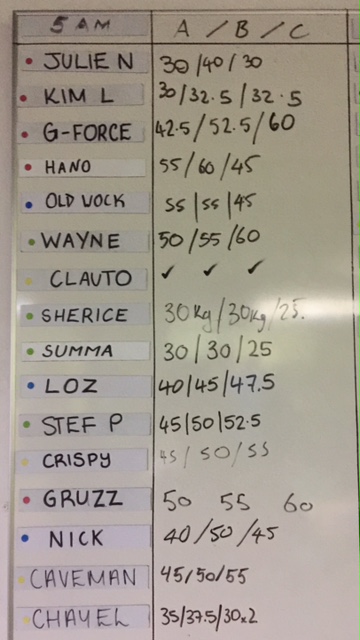 5 AM A / B / C
JULIE N 30/40/30
KIM L 30/32.5/32.5
G-FORCE 42.5/52.5/60
HANO 55/60/45
OLD VOCK 55/55/45
WAYNE 50/55/60
CLAUTO ✓ ✓ ✓
SHERICE 30kg/30kg/25.
SUMMA 30/30/25
LOZ 40/45/47.5
STEF P 45/50/52.5
CRISPY 45/50/55
GRUZZ 50 55 60
NICK 40/50/45
CAVEMAN 45/50/55
CHAYEL 35/37.5/30x2